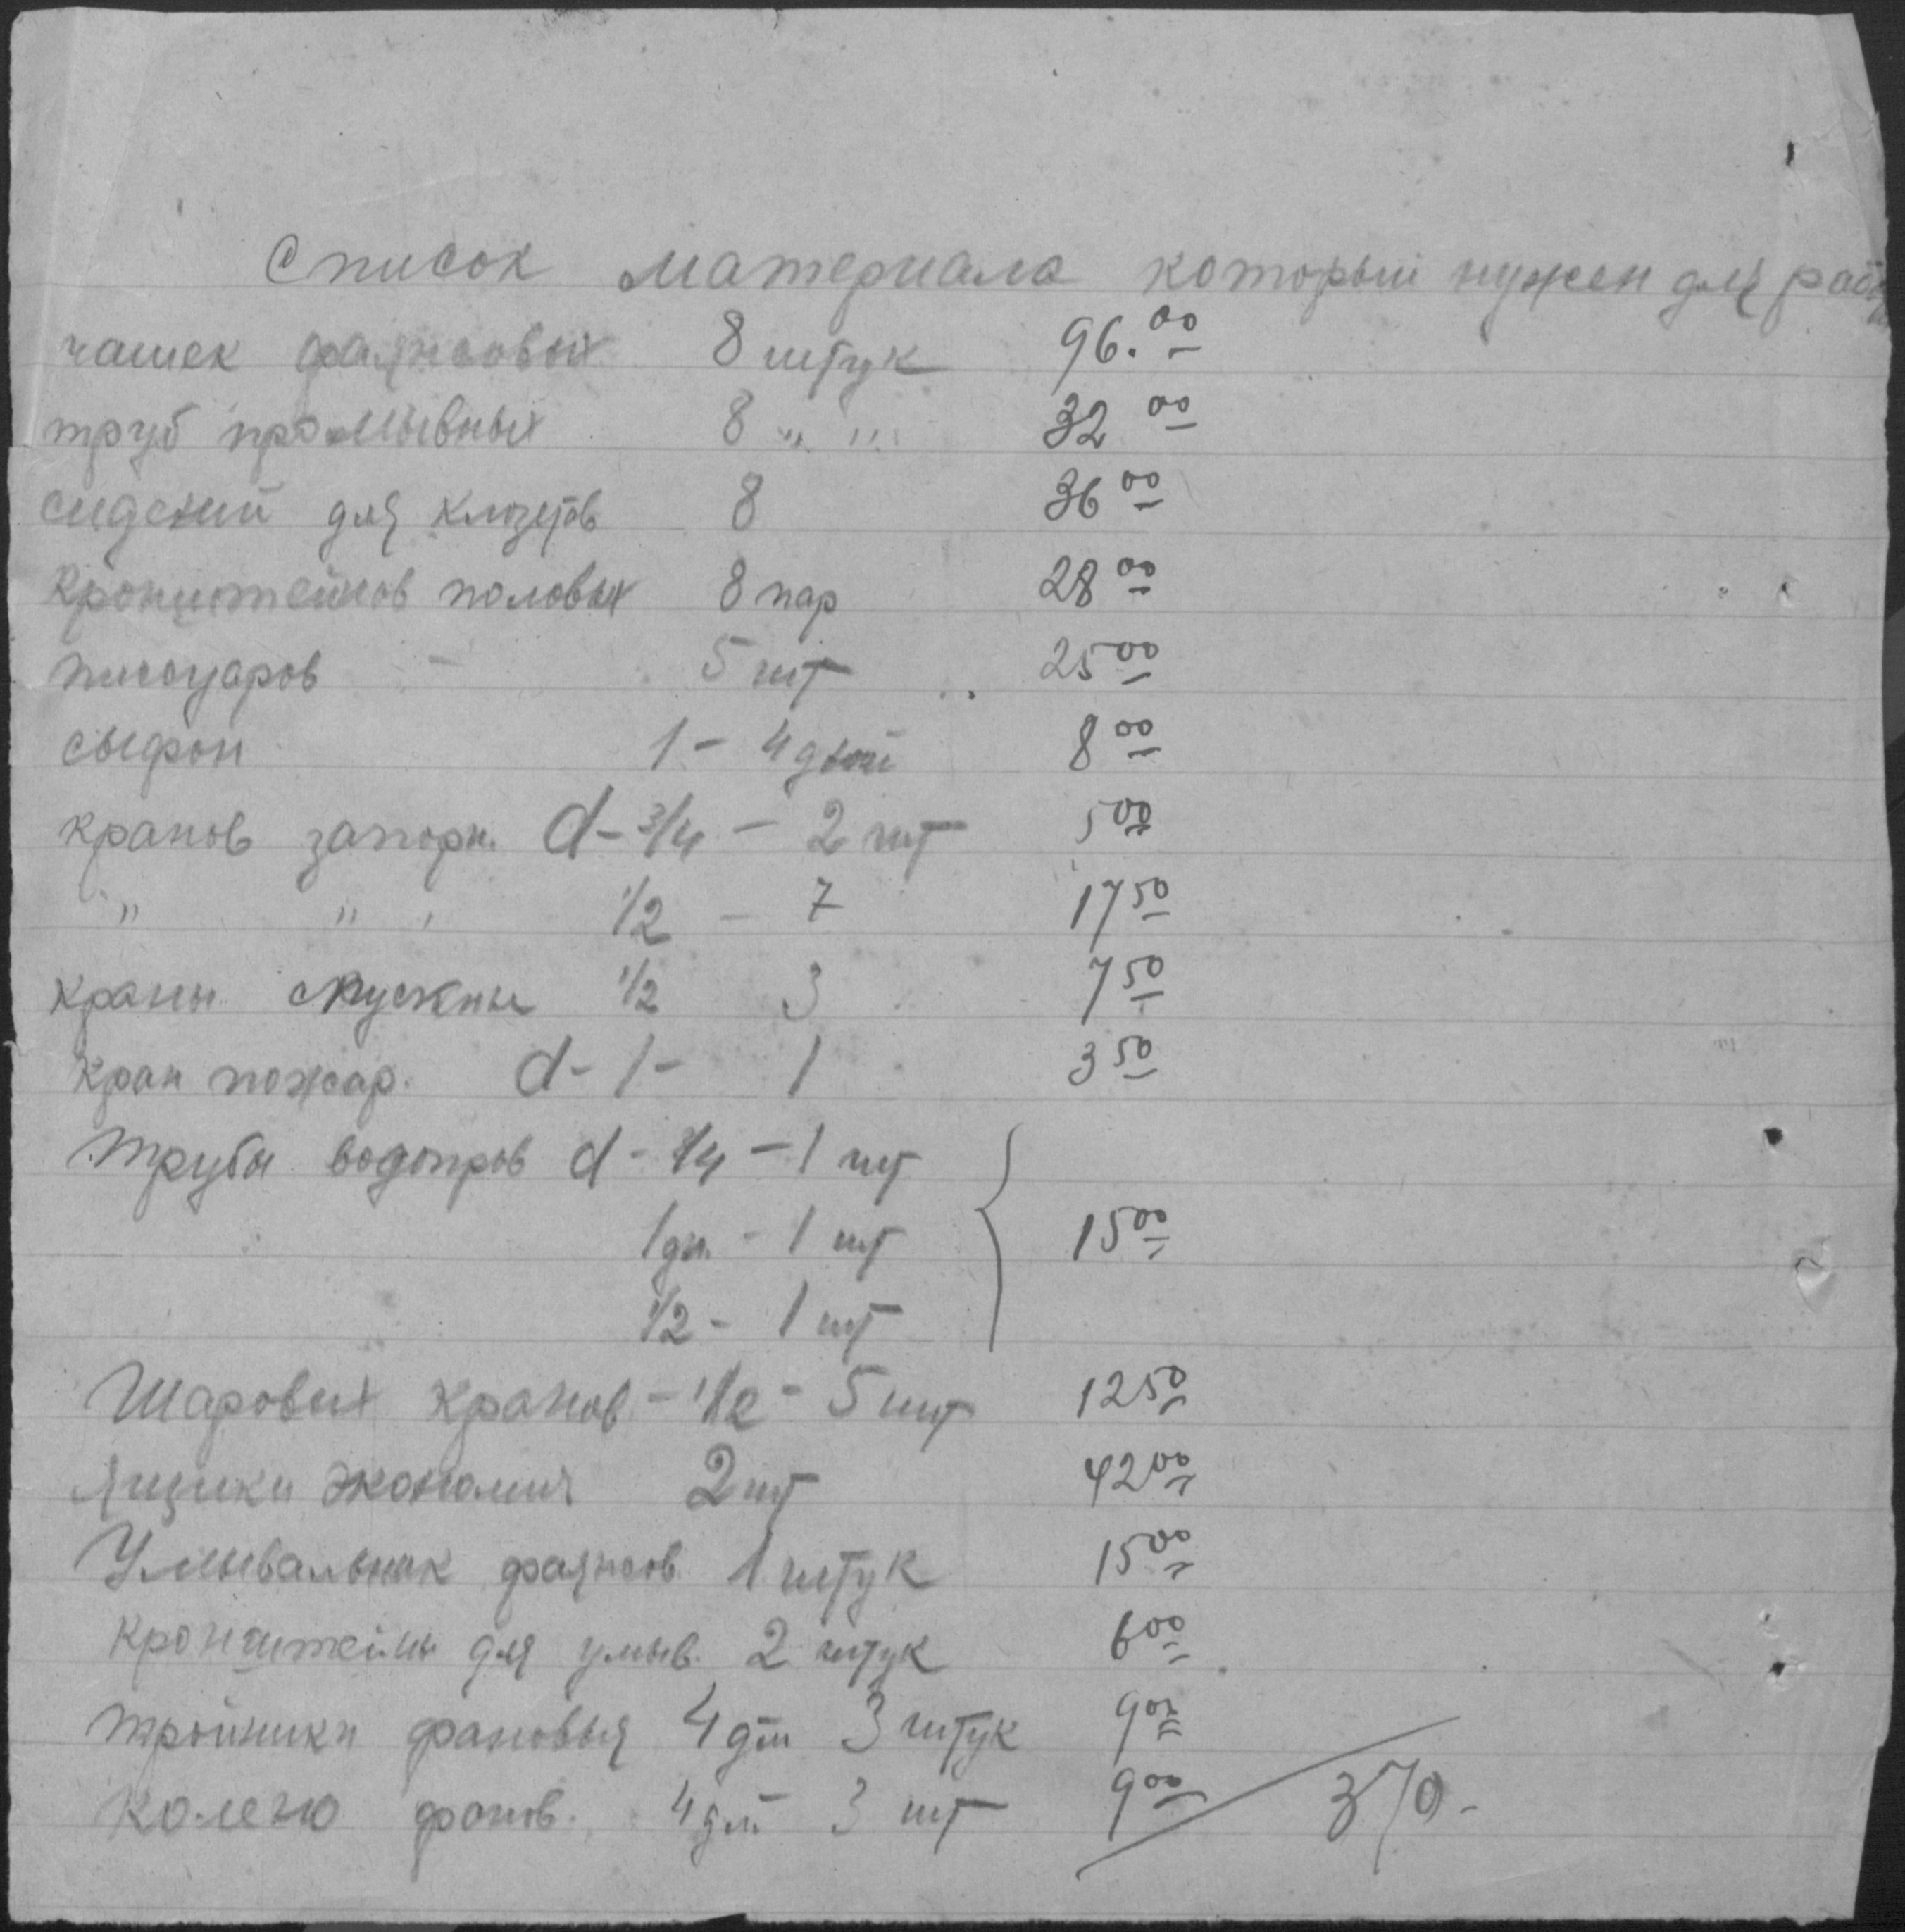 Список материала который нужен для работы
чашек фаянсовых 8 штук 96.00
труб промывных 8 " " 32 00
сидений для клозетов 8 36 00
Кронштейнов половых 8 пар 28 00
писсуаров - 5 шт 25 00
сыфон 1 - 4 дюй 8 00
кранов запорн. d - 3/4 - 2 шт 5 00
" " 1/2 - 7 17 50
краны спускные 1/2 3 7 50
кран пожар. d - 1 - 1 3 50
Трубы водопров d - 3/4 - 1 шт
1 дм. - 1 шт 15 00
1/2 - 1 шт
Шаровых кранов - 1/2 - 5 шт 12 50
Ящики экономия 2 шт 42 00
Умывальник фаянсов. 1 штук 15 00
кронштейны для умыв. 2 штук 6 00
тройники фановыя 4 дм 3 штук 9 00
колено фанов. 4 дм 3 шт 9 00 370-